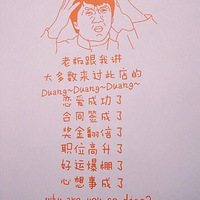 老板跟我讲
大多数来过此店的
Duang~Duang~Duang~
恋爱成功了
合同签成了
奖金翻倍了
职位高升了
好运爆棚了
心想事成了
why are you so